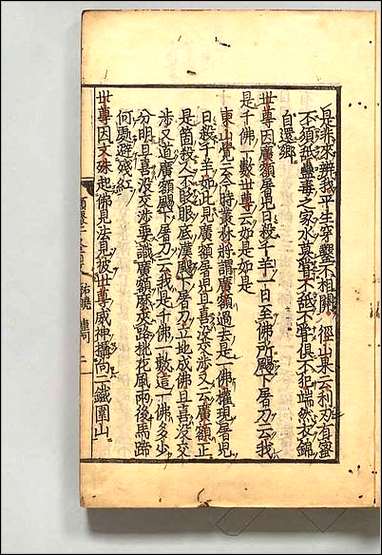 是弗來辨我平生穿鑿不相關　徑山杲云利刃有蜜
不須舐蠱毒之家水莫嘗不舐不嘗俱不犯端然衣錦
自還鄉
世尊因廣額屠兒日殺千羊一日至佛所颺下屠刀云我
是千佛一數世尊云如是如是
東山覺云今時叢林將謂廣額過去是一佛權現屠兒
日殺千羊如此見廣額屠兒且喜沒交涉又云廣額正
是箇殺人不眨眼底漢颺下屠刀立地成佛且喜沒交
涉又道廣額颺下屠刀云我是千佛一數這一佛多少
分明且喜沒交涉要識廣額麼夾路桃花風雨後馬蹄
何處避殘紅
世尊因文殊起佛見法見被世尊威神攝向二鐵圍山